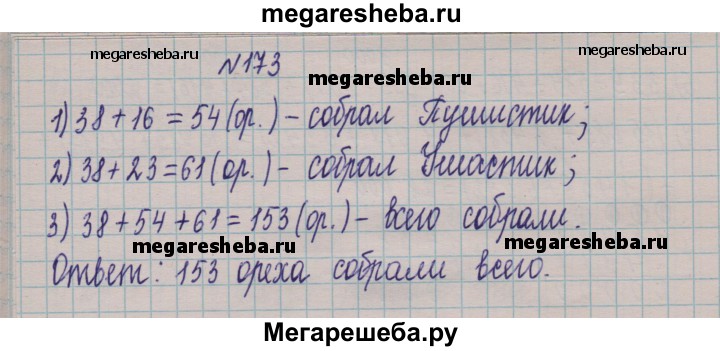 megaresheba.ru
megaresheba.ru
megaresheba.ru
№173
megaresheba.ru
1) 38 + 16 = 54 (ор.) - собрал Пушистик;
2) 38 + 23 = 61 (ор.) - собрал Ушастик;
3) 38 + 54 + 61 = 153 (ор.) - всего собрали.
megaresheba.ru
megaresheba.ru
Ответ: 153 ореха собрали всего.
Мегарешеба.ру